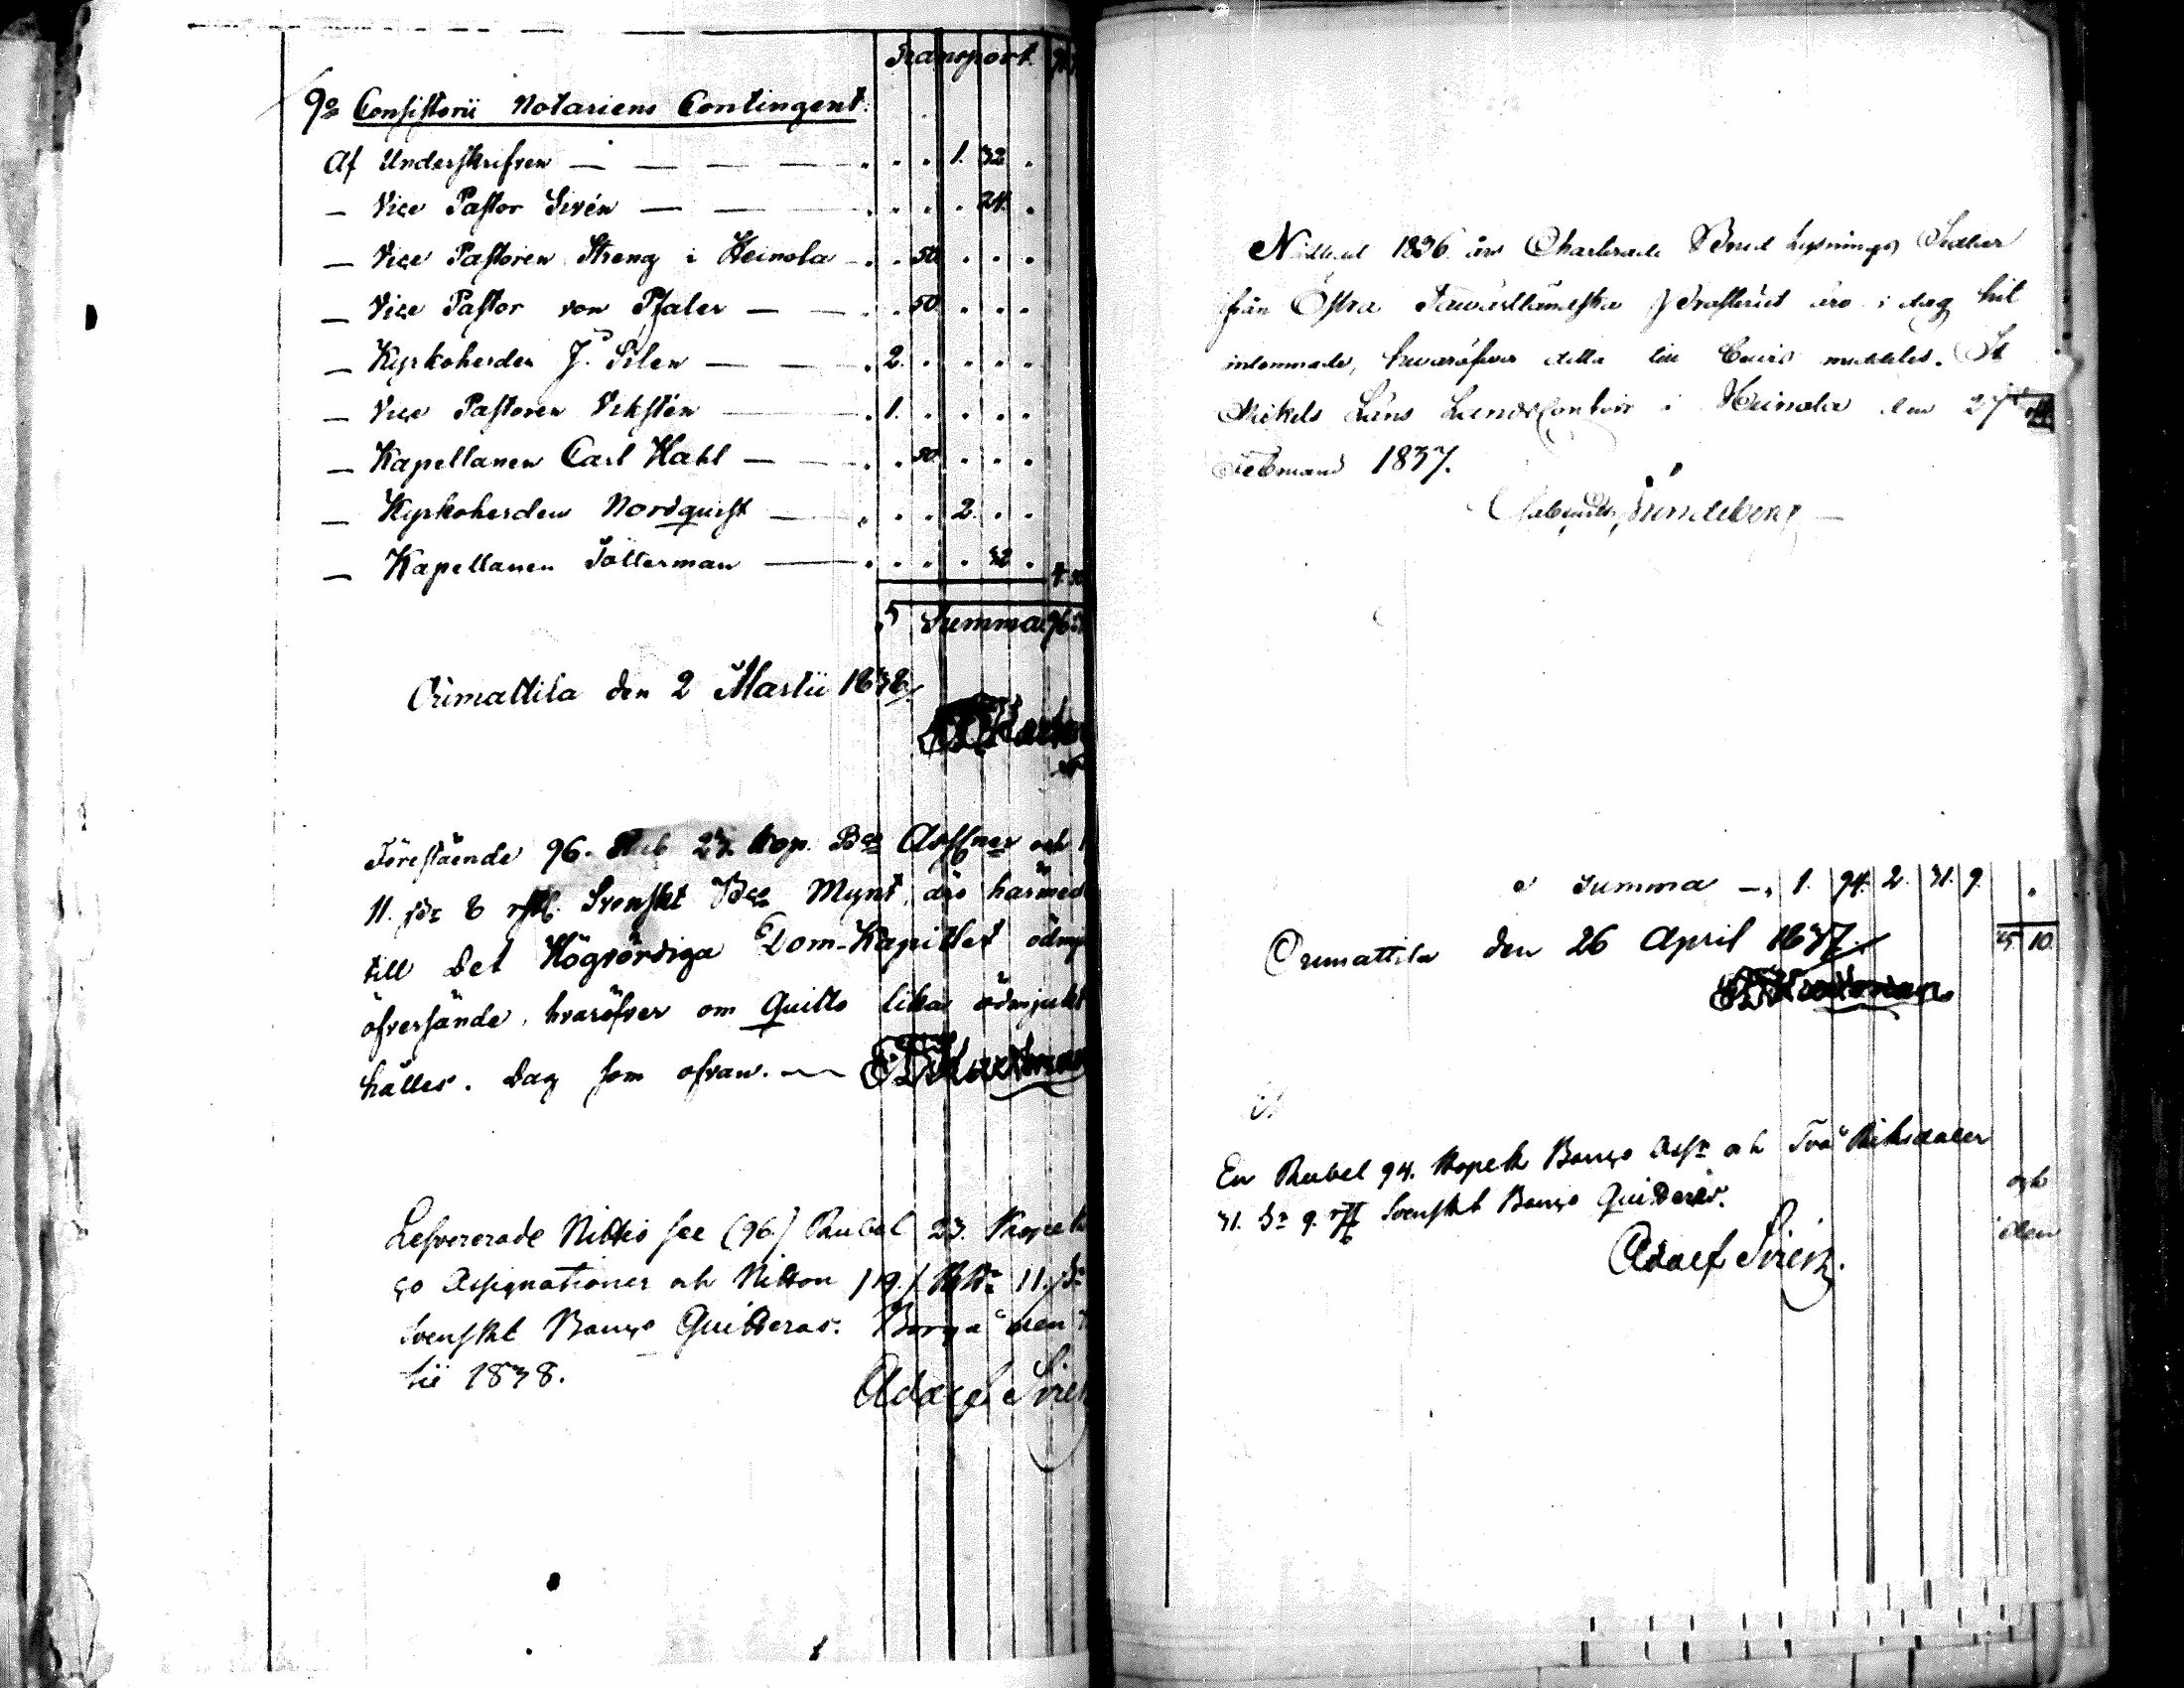 Transport
9o Consistorii Notariens Contingent.
Af Underskrifven — . . . 1. 32 .
— Vice Pastor Sirén — . . . . 24. .
— Vice Pastoren Streng i Heinola — . . 50 . . .
— Vice Pastor von Pfaler — . . 50 . . . .
— Kyrkoherden J. Silen — . 2. . . . .
— Vice Pastoren Vikstén — . 1. . . . .
— Kapellanen Carl Hahl — . . 50 . . .
— Kyrkoherden Nordquist — . . . 2. . .
— Kapellanen Tolterman — . . . . 32 .
Summa 96
Orimattila den 2 Martii 1838.
Förestående 96. Rub 23. Kop. Bco Assner och
11. sk 8 rst. Svenskt Bco Mynt, äro härmed
till Det Högvördiga Dom-Kapitlet ödmj
öfversände, hvaröfver om Quitto lika ödmjukt
hålles. Dag som ofvan.
Lefvererade Nittio sex (96) Rubel 23. Kopek
co Assignationer och Nitton (19.) RDr 11. sk
Svenskt Banco Quitteras. Borgå den
tii 1838.
Adolf Sirén
1836 års Charterade Lysnings Sedlar
från Östra Tavastländska Prosteriet äro i dag hit
inkomne, hvaröfver detta till bevis meddelas. St
Mickels Läns Landscontoir i Heinola den 27
Februarii 1837.
Summa — 1. 94. 2. 31. 9. .
Orimattila den 26 April 1837.
5 10
En Rubel 94. Kopek Banco Assr och Två Riksdaler
31. sk 9. rst Svenskt Banco Quitteras.
och
den
Adolf Sirén.